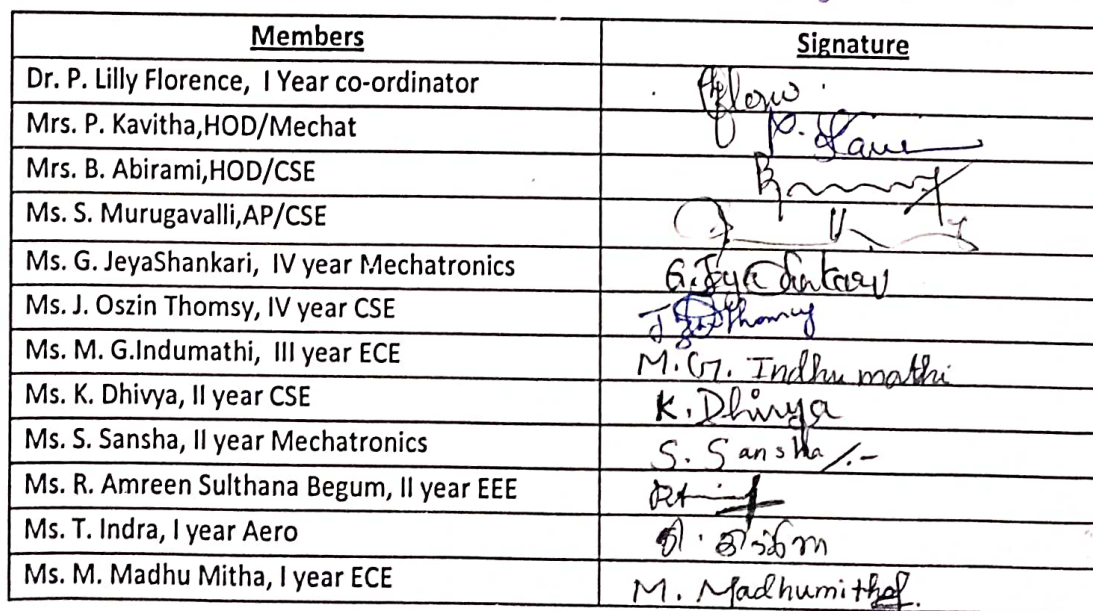 Members Signature
Dr. P. Lilly Florence, I Year co-ordinator
Mrs. P. Kavitha,HOD/Mechat
Mrs. B. Abirami,HOD/CSE
Ms. S. Murugavalli,AP/CSE
Ms. G. JeyaShankari, IV year Mechatronics
Ms. J. Oszin Thomsy, IV year CSE
Ms. M. G.Indumathi, III year ECE M. G. Indhu mathi
Ms. K. Dhivya, II year CSE K. Dhivya
Ms. S. Sansha, II year Mechatronics S. Sansha
Ms. R. Amreen Sulthana Begum, II year EEE
Ms. T. Indra, I year Aero தி. இந்திரா
Ms. M. Madhu Mitha, I year ECE M. Madhumitha